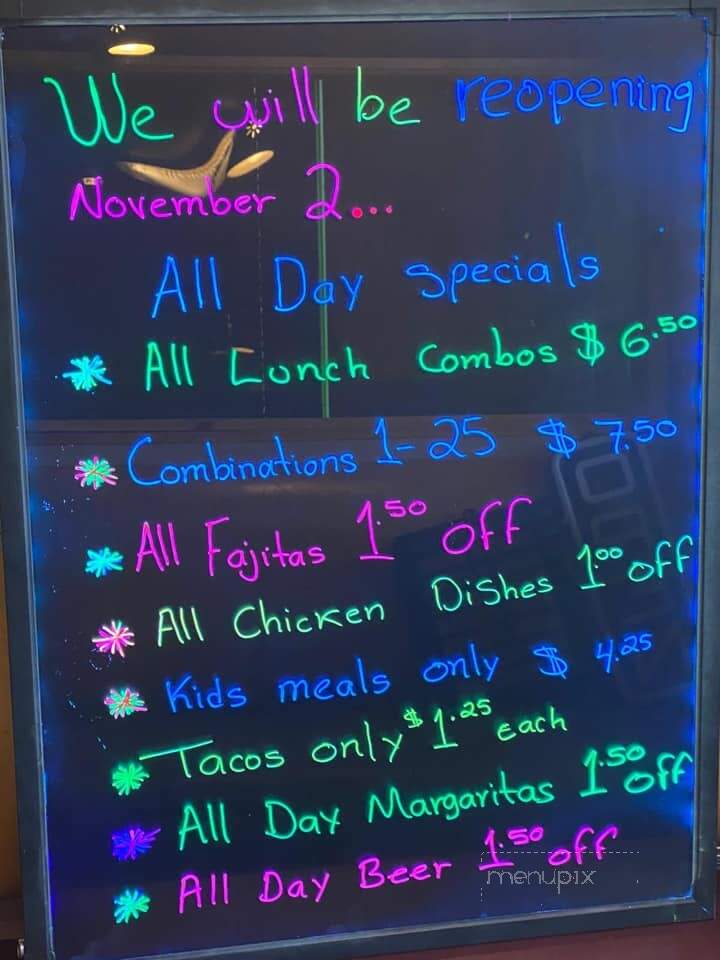 We will be reopening
November 2...
All Day specials
All Lunch Combos $ 6.50
Combinations 1-25 $ 7.50
All Fajitas 1.50 off
All Chicken Dishes 1.00 off
Kids meals only $ 4.25
Tacos only $1.25 each
All Day Margaritas 1.50 off
All Day Beer 1.50 off
menupix